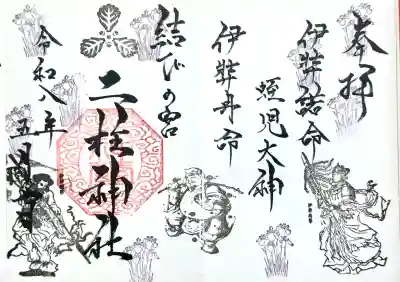 奉拝
伊弉諾命
蛭児大神
伊弉冉命
結びの宮
二柱神社
令和八年
五月
日